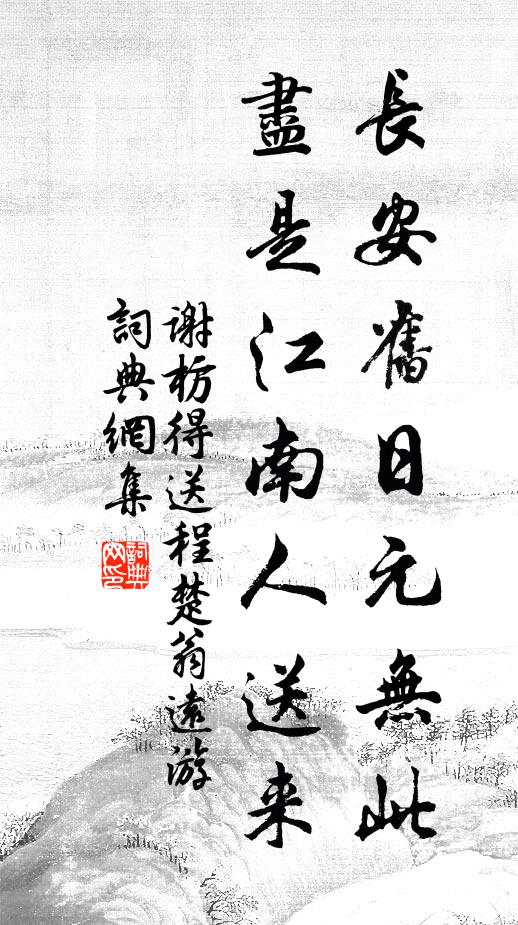 長安舊日元無此
盡是江南人送来
謝枋得送程楚翁遠游
詞典網集
詞典网印